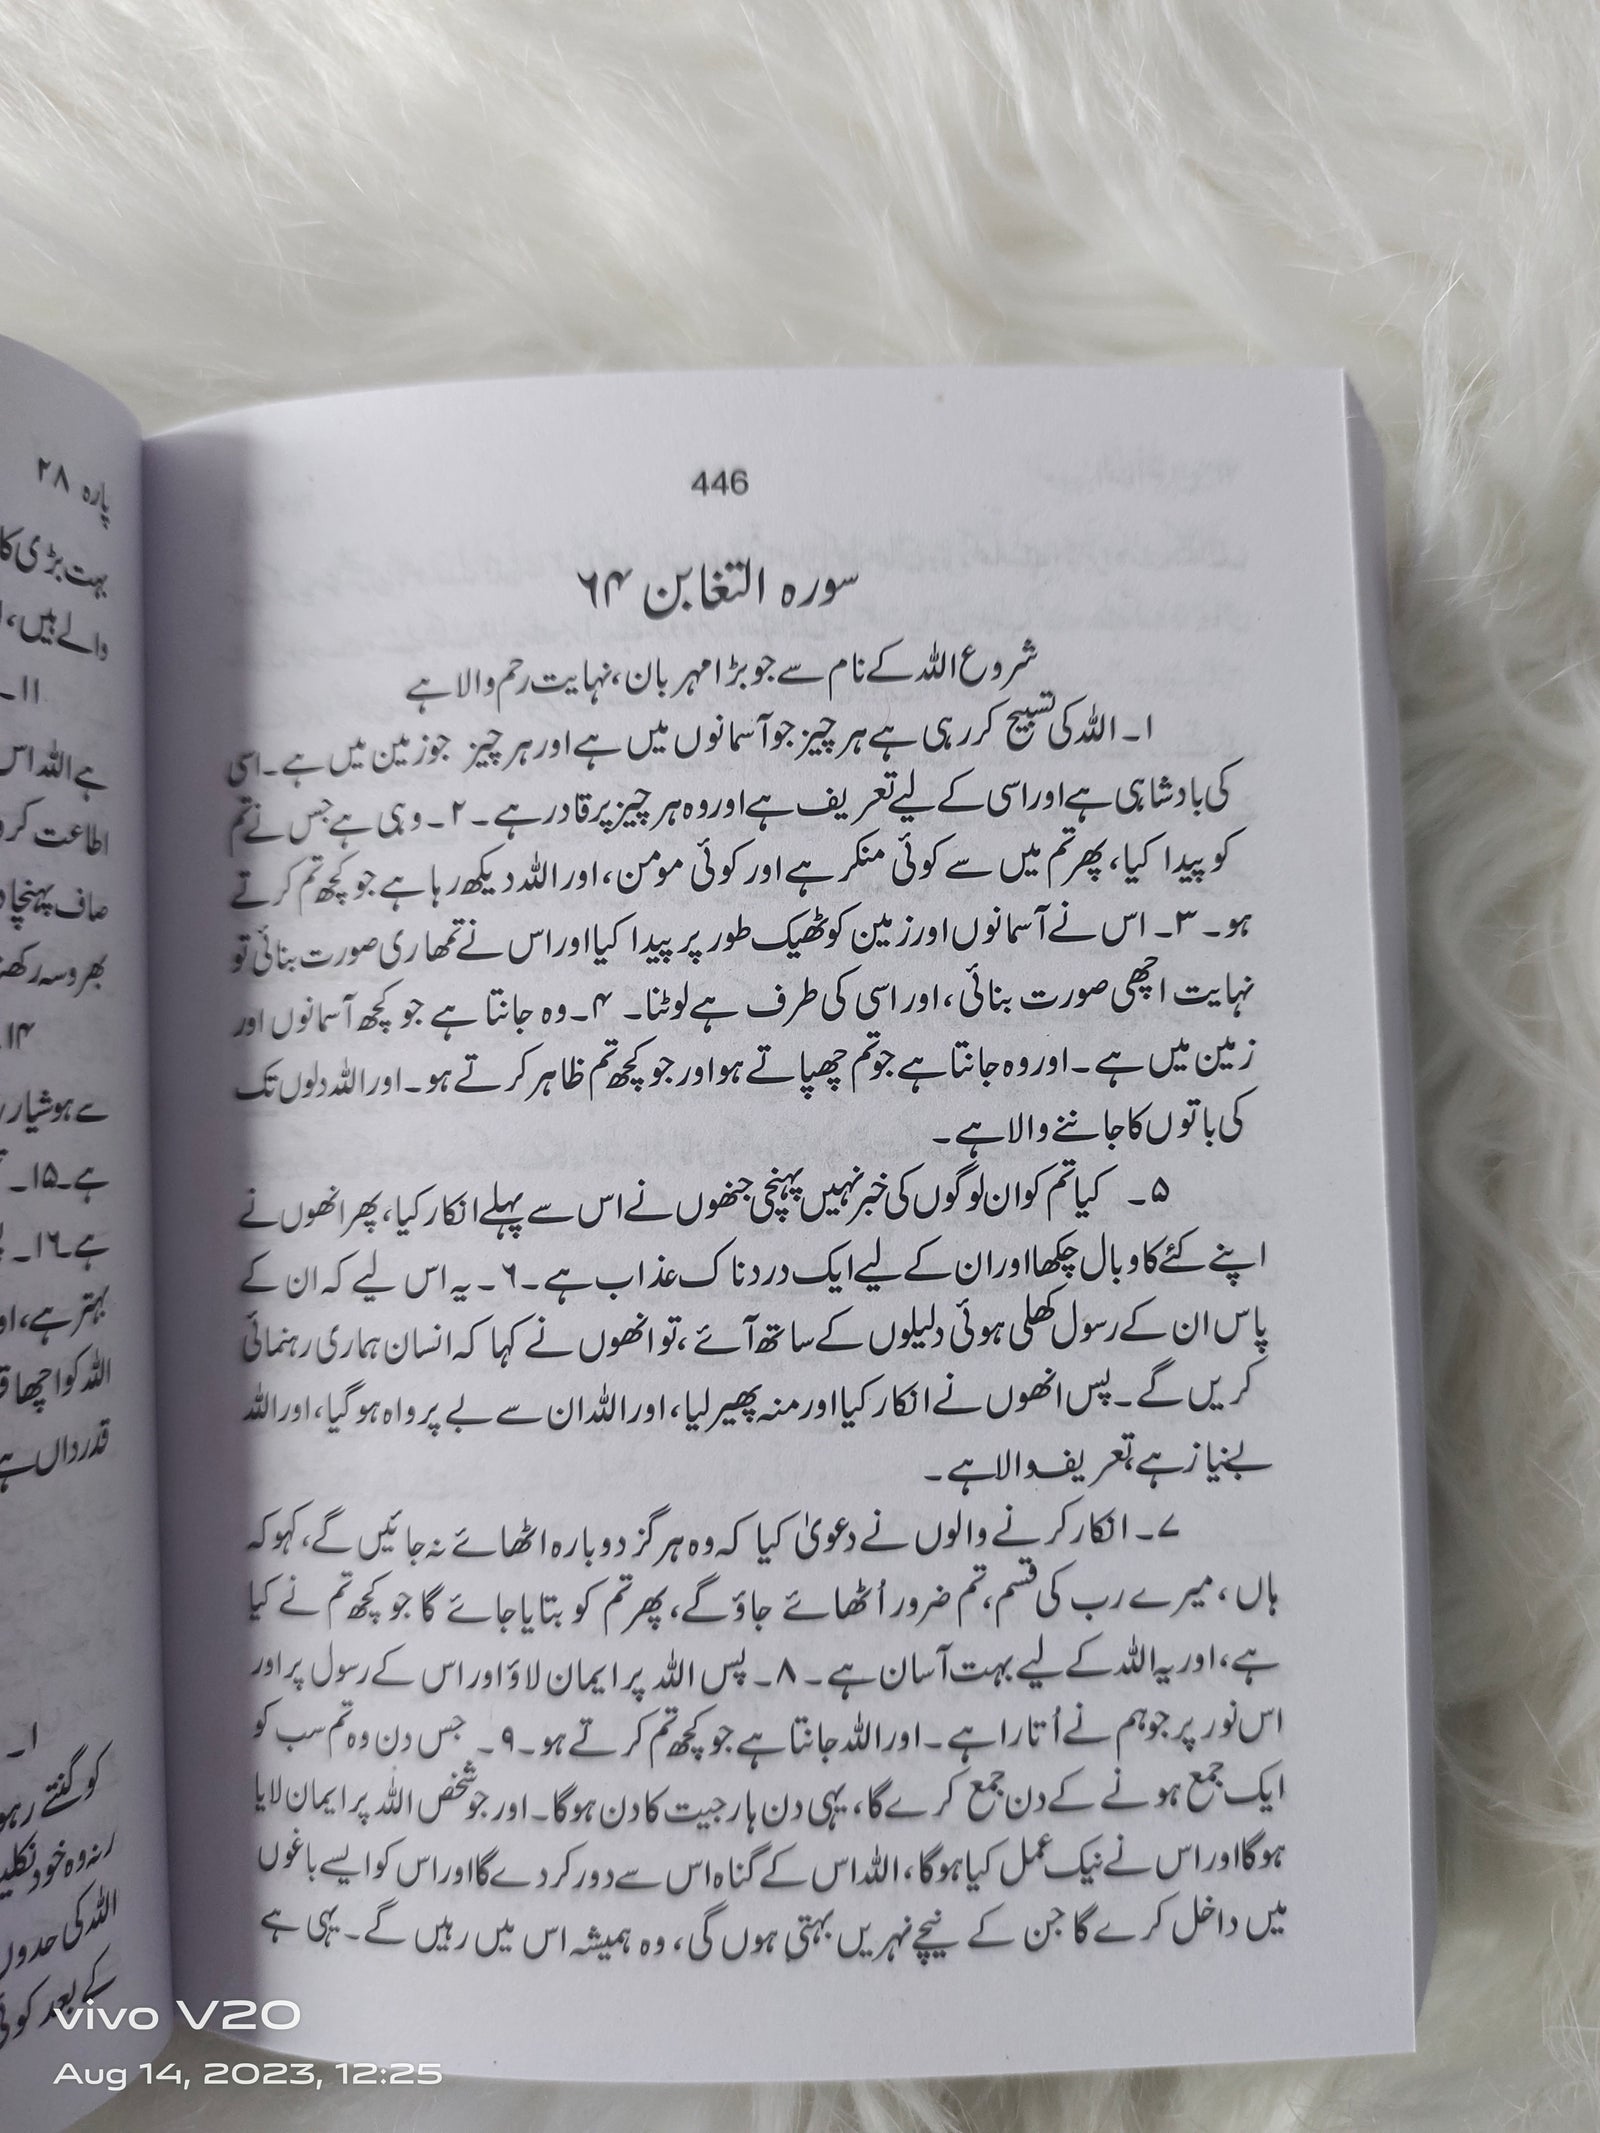 446
سورہ التغابن ۶۴
شروع اللہ کے نام سے جو بڑا مہربان، نہایت رحم والا ہے
۱۔ اللہ کی تسبیح کر رہی ہے ہر چیز جو آسمانوں میں ہے اور ہر چیز جو زمین میں ہے۔ اسی
کی بادشاہی ہے اور اسی کے لیے تعریف ہے اور وہ ہر چیز پر قادر ہے۔ ۲۔ وہی ہے جس نے تم
کو پیدا کیا، پھر تم میں سے کوئی منکر ہے اور کوئی مومن، اور اللہ دیکھ رہا ہے جو کچھ تم کرتے
ہو۔ ۳۔ اس نے آسمانوں اور زمین کو ٹھیک طور پر پیدا کیا اور اس نے تمھاری صورت بنائی تو
نہایت اچھی صورت بنائی، اور اسی کی طرف ہے لوٹنا۔ ۴۔ وہ جانتا ہے جو کچھ آسمانوں اور
زمین میں ہے۔ اور وہ جانتا ہے جو تم چھپاتے ہو اور جو کچھ تم ظاہر کرتے ہو۔ اور اللہ دلوں تک
کی باتوں کا جاننے والا ہے۔
۵۔ کیا تم کو ان لوگوں کی خبر نہیں پہنچی جنھوں نے اس سے پہلے انکار کیا، پھر انھوں نے
اپنے کئے کا وبال چکھا اور ان کے لیے ایک دردناک عذاب ہے۔ ۶۔ یہ اس لیے کہ ان کے
پاس ان کے رسول کھلی ہوئی دلیلوں کے ساتھ آئے، تو انھوں نے کہا کہ انسان ہماری رہنمائی
کریں گے۔ پس انھوں نے انکار کیا اور منہ پھیر لیا، اور اللہ ان سے بے پرواہ ہو گیا، اور اللہ
بے نیاز ہے، تعریف والا ہے۔
۷۔ انکار کرنے والوں نے دعویٰ کیا کہ وہ ہرگز دوبارہ اٹھائے نہ جائیں گے، کہو کہ
ہاں، میرے رب کی قسم، تم ضرور اُٹھائے جاؤ گے، پھر تم کو بتایا جائے گا جو کچھ تم نے کیا
ہے، اور یہ اللہ کے لیے بہت آسان ہے۔ ۸۔ پس اللہ پر ایمان لاؤ اور اس کے رسول پر اور
اس نور پر جو ہم نے اُتارا ہے۔ اور اللہ جانتا ہے جو کچھ تم کرتے ہو۔ ۹۔ جس دن وہ تم سب کو
ایک جمع ہونے کے دن جمع کرے گا، یہی دن ہار جیت کا دن ہوگا۔ اور جو شخص اللہ پر ایمان لایا
ہوگا اور اس نے نیک عمل کیا ہوگا، اللہ اس کے گناہ اس سے دور کر دے گا اور اس کو ایسے باغوں
میں داخل کرے گا جن کے نیچے نہریں بہتی ہوں گی، وہ ہمیشہ اس میں رہیں گے۔ یہی ہے
پارہ ۲۸
بہت بڑی
والے ہیں،
۱۱۔
ہے اللہ اس
اطاعت کرو
صاف پہنچا
بھروسہ
۱۴
سے ہوشیار
ہے۔ ۱۵۔
ہے۔ ۱۶۔
بہتر ہے،
اللہ کو اچھا
قدرداں ہے
۱۔
کو گنتے رہو
نہ وہ خود
اللہ کی حدوں
کے بعد کوئی
vivo V20
Aug 14, 2023, 12:25